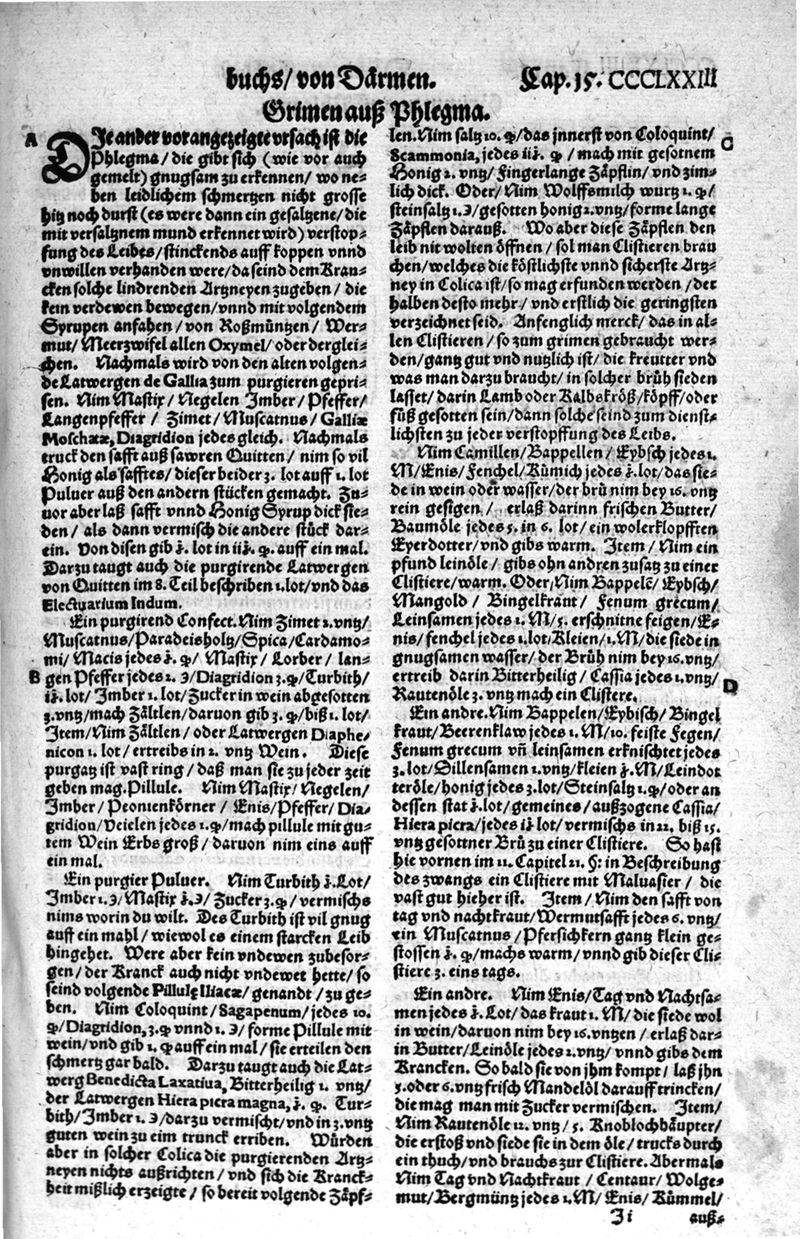 buchs/ von Därmen. Cap. 15. CCCLXXIII
Grimen auß Phlegma.
A
DJe ander vorangezeigte vrsach ist die
Phlegma/ die gibt sich (wie vor auch
gemelt) gnugsam zu erkennen/ wo ne-
ben leidlichem schmertzen nicht grosse
hitz noch durst (es were dann ein gesaltzene/ die
mit versaltznem mund erkennet wird) verstopf-
fung des Leibes/ stinckends auff koppen vnnd
vnwillen verhanden were/ da seind dem Kran-
cken solche lindrenden Artzneyen zugeben/ die
kein verdewen bewegen/ vnnd mit volgendem
Syrupen anfahen/ von Roßmüntzen/ Wer-
mut/ Meerzwifel allen Oxymel/ oder derglei-
chen. Nachmals wird von den alten volgen-
de Latwergen de Gallia zum purgieren gepri-
sen. Nim Mastix/ Negelen Jmber/ Pfeffer/
Langenpfeffer/ Zimet/ Muscatnus/ Galliæ
Moschatæ, Diagridion jedes gleich. Nachmals
truck den safft auß sawren Quitten/ nim so vil
Honig als safftes/ dieser beider 3. lot auff 1. lot
Puluer auß den andern stücken gemacht. Zu-
uor aber laß safft vnnd Honig Syrup dick sie-
den/ als dann vermisch die andere stück dar-
ein. Von disen gib j. lot in iij. ℈. auff ein mal.
Darzu taugt auch die purgirende Latwergen
von Quitten im 8. Teil beschriben 1. lot/ vnd das
Electuarium Indum.
Ein purgirend Confect. Nim Zimet 2. vntz/
Muscatnus/ Paradeisholtz/ Spica/ Cardamo-
mi/ Macis jedes j. ℈/ Mastix/ Lorber/ lan-
B
gen Pfeffer jedes 2. ℈/ Diagridion 3. ℈/ Turbith/
ij. lot/ Jmber 1. lot/ Zucker in wein abgesotten
3. vntz/ mach Zältlen/ daruon gib 3. ℈/ biß 1. lot/
Jtem/ Nim Zältlen/ oder Latwergen Diaphe-
nicon 1. lot/ ertreibs in 2. vntz Wein. Diese
purgatz ist vast ring/ daß man sie zu jeder zeit
geben mag. Pillule. Nim Mastix/ Negelen/
Jmber/ Peonienkörner/ Enis/ Pfeffer/ Dia-
gridion/ Veielen jedes 1. ℈/ mach pillule mit gu-
tem Wein Erbs groß/ daruon nim eins auff
ein mal.
Ein purgier Puluer. Nim Turbith j. Lot/
Jmber 1. ℈/ Mastix j. ℈/ Zucker 3. ℈/ vermischs
nims worin du wilt. Des Turbith ist vil gnug
auff ein mahl/ wiewol es einem starcken Leib
hingehet. Were aber kein vndewen zubesor-
gen/ der Kranck auch nicht vndewet hette/ so
seind volgende Pillulę Iliacæ/ genandt/ zu ge-
ben. Nim Coloquint/ Sagapenum/ jedes 10.
℈/ Diagridion, 3. ℈ vnnd 1. ℈/ forme Pillule mit
wein/ vnd gib 1. ℈ auff ein mal/ sie erteilen den
schmertz gar bald. Darzu taugt auch die Lat-
werg Benedicta Laxatiua, Bitterheilig 1. vntz/
der Latwergen Hiera picra magna, j. ℈. Tur-
bith/ Jmber 1. ℈/ darzu vermischt/ vnd in 3. vntz
guten wein zu eim trunck erriben. Würden
aber in solcher Colica die purgierenden Artz-
neyen nichts außrichten/ vnd sich die Kranck-
heit mißlich erzeigte/ so bereit volgende Zäpf-
len. Nim saltz 10. ℈/ das jnnerst von Coloquint/
C
Scammonia, jedes iij. ℈/ mach mit gesotnem
Honig 2. vntz/ Fingerlange Zäpflin/ vnd zim-
lich dick. Oder/ Nim Wolffsmilch wurtz 1. ℈/
steinsaltz 1. ℈/ gesotten honig 2. vntz/ forme lange
Zäpflen darauß. Wo aber diese Zäpflen den
leib nit wolten öffnen/ sol man Clistieren brau
chen/ welches die köstlichste vnnd sicherste Artz-
ney in Colica ist/ so mag erfunden werden/ der
halben desto mehr/ vnd erstlich die geringsten
verzeichnet seid. Anfenglich merck/ das in al-
len Clistieren/ so zum grimen gebraucht wer-
den/ gantz gut vnd nutzlich ist/ die kreutter vnd
was man darzu braucht/ in solcher brüh sieden
lasset/ darin Lamb oder Kalbskröß/ köpff/ oder
füß gesotten sein/ dann solche seind zum dienst-
lichsten zu jeder verstopffung des Leibs.
Nim Camillen/ Bappellen/ Eybsch jedes 1.
M/ Enis/ Fenchel/ Kümich jedes j. lot/ das sie-
de in wein oder wasser/ der brü nim bey 16. vntz
rein gesigen/ erlaß darinn frischen Butter/
Baumöle jedes 5. in 6. lot/ ein wolerklopfften
Eyerdotter/ vnd gibs warm. Jtem/ Nim ein
pfund leinöle/ gibs ohn andren zusatz zu einer
Clistiere/ warm. Oder/ Nim Bappelē/ Eybsch/
Mangold/ Bingelkraut/ Fenum grecum/
Leinsamen jedes 1. M/ 5. erschnitne feigen/ E-
nis/ fenchel jedes 1. lot/ Kleien/ 1. M/ die siede in
gnugsamen wasser/ der Brüh nim bey 16. vntz/
ertreib darin Bitterheilig/ Cassia jedes 1. vntz/
D
Rautenöle 3. vntz mach ein Clistiere.
Ein andre. Nim Bappelen/ Eybisch/ Bingel
kraut/ Beerenklaw jedes 1. M/ 10. feiste Fegen/
Fenum grecum vñ leinsamen erknischtet jedes
3. lot/ Dillensamen 1. vntz/ kleien j. M/ Leindot
teröle/ honig jedes 3. lot/ Steinsaltz 1. ℈/ oder an
dessen stat j. lot/ gemeines/ außzogene Cassia/
Hiera picra/ jedes ij lot/ vermischs in 12. biß 15.
vntz gesottner Brü zu einer Clistiere. So hast
hie vornen im 11. Capitel 21. §: in Beschreibung
des zwangs ein Clistiere mit Maluasier/ die
vast gut hieher ist. Jtem/ Nim den safft von
tag vnd nachtkraut/ Wermutsafft jedes 6. vntz/
ein Muscatnus/ Pfersichkern gantz klein ge-
stossen j. ℈/ machs warm/ vnnd gib dieser Cli-
stiere 3. eins tags.
Ein andre. Nim Enis/ Tag vnd Nachtsa-
men jedes j. Lot/ das kraut 1. M/ die siede wol
in wein/ daruon nim bey 16. vntzen/ erlaß dar-
in Butter/ Leinöle jedes 2. vntz/ vnnd gibs dem
Krancken. So bald sie von jhm kompt/ laß jhn
5. oder 6. vntz frisch Mandelöl darauff trincken/
die mag man mit Zucker vermischen. Jtem/
Nim Rautenöle 12. vntz/ 5. Knoblochhäupter/
die erstoß vnd siede sie in dem öle/ trucks durch
ein thuch/ vnd brauchs zur Clistiere. Abermals
Nim Tag vnd Nachtkraut/ Centaur/ Wolge-
mut/ Bergmüntz jedes 1. M/ Enis/ Kümmel/
Ji auß-